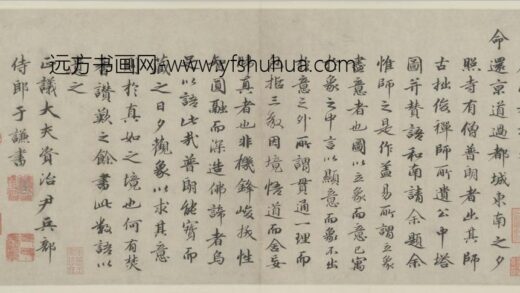 命
還京道過都城東南之夕
照寺有僧普朗者出其師
古拙俊禪師所遺公中塔
圖并贊語和南請余題余
惟師之是作蓋易所謂立象
盡意者也圖以立象而意已寓
於象之中言以顯意而象不出
乎意之外所謂貫通一理而
包括三教因境悟道而舍妄
歸真者也非機鋒峻拔性
智圓融而深造佛諦者烏
足以語此哉普朗能寶而
藏之日夕觀象以求其意
則於真如之境也何有焚
香讚歎之餘書此數語以
遺之
正議大夫資治尹兵部
侍郎于謙書
远方书画网:www.yfshuhua.com